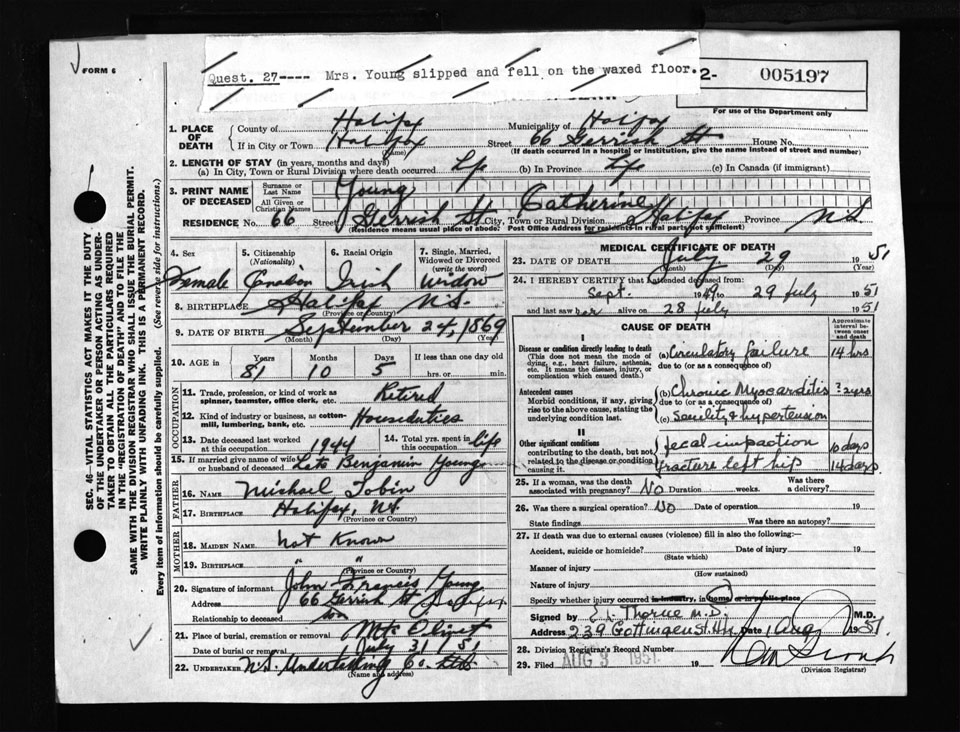 FORM 6
Quest. 27---- Mrs. Young slipped and fell on the waxed floor.
2- 005197
For use of the Department only
1. PLACE OF DEATH
County of Halifax Municipality of Halifax
If in City or Town Halifax (Name) Street 66 Gerrish St House No.
(If death occurred in a hospital or institution, give the name instead of street and number)
2. LENGTH OF STAY (in years, months and days)
(a) In City, Town or Rural Division where death occurred Life (b) In Province Life (c) In Canada (if immigrant)
3. PRINT NAME OF DECEASED
Surname or Last Name Young
All Given or Christian Names Catherine
RESIDENCE No. 66 Street Gerrish St City, Town or Rural Division Halifax Province N.S.
(Residence means usual place of abode: Post Office Address for residents in rural parts not sufficient)
4. Sex Female
5. Citizenship (Nationality) Canadian
6. Racial Origin Irish
7. Single, Married, Widowed or Divorced (write the word) Widow
8. BIRTHPLACE Halifax N.S.
(Province or Country)
9. DATE OF BIRTH September 24, 1869
(Month) (Day) (Year)
10. AGE in Years 81 Months 10 Days 5 If less than one day old hrs. or min.
OCCUPATION
11. Trade, profession, or kind of work as spinner, teamster, office clerk, etc. Retired
12. Kind of industry or business, as cotton-mill, lumbering, bank, etc. Houseduties
13. Date deceased last worked at this occupation 1944
14. Total yrs. spent in this occupation life
15. If married give name of wife or husband of deceased Late Benjamin Young
FATHER
16. NAME Michael Tobin
17. BIRTHPLACE Halifax, N.S.
(Province or Country)
MOTHER
18. MAIDEN NAME Not Known
19. BIRTHPLACE " "
(Province or Country)
20. Signature of informant John Francis Young
Address 66 Gerrish St Halifax
Relationship to deceased son
21. Place of burial, cremation or removal Mt. Olivet
Date of burial or removal July 31/51
22. UNDERTAKER N.S. Undertaking Co. Ltd.
(Name and address)
MEDICAL CERTIFICATE OF DEATH
23. DATE OF DEATH July 29 51
(Month) (Day) (Year)
24. I HEREBY CERTIFY that I attended deceased from:
Sept. 1949 to 29 July 1951
and last saw her alive on 28 July 1951
CAUSE OF DEATH
Approximate interval between onset and death
I
Disease or condition directly leading to death
(This does not mean the mode of dying, e.g., heart failure, asthenia, etc. It means the disease, injury, or complication which caused death.)
(a) Circulatory failure 14 hrs
due to (or as a consequence of)
Antecedent causes
Morbid conditions, if any, giving rise to the above cause, stating the underlying condition last.
(b) Chronic Myocarditis ? yrs
due to (or as a consequence of)
(c) Senility & hypertension
II
Other significant conditions contributing to the death, but not related to the disease or condition causing it.
fecal impaction 10 days
fracture left hip 14 days.
25. If a woman, was the death associated with pregnancy? No Duration weeks. Was there a delivery?
26. Was there a surgical operation? No Date of operation 19
State findings Was there an autopsy?
27. If death was due to external causes (violence) fill in also the following:—
Accident, suicide or homicide? Date of injury 19
(State which)
Manner of injury
(How sustained)
Nature of injury
Specify whether injury occurred in industry, in home, or in public place
Signed by E. L. Thorne M.D. M.D.
Address 239 Gottingen St. Hfx Date 1 Aug 1951.
28. Division Registrar's Record Number
29. Filed AUG 3 1951 19
(Division Registrar)
SEC. 46—VITAL STATISTICS ACT MAKES IT THE DUTY OF THE UNDERTAKER OR PERSON ACTING AS UNDERTAKER TO OBTAIN ALL THE PARTICULARS REQUIRED IN THE "REGISTRATION OF DEATH" AND TO FILE THE SAME WITH THE DIVISION REGISTRAR WHO SHALL ISSUE THE BURIAL PERMIT.
WRITE PLAINLY WITH UNFADING INK. THIS IS A PERMANENT RECORD.
Every item of information should be carefully supplied. (See reverse side for instructions.)